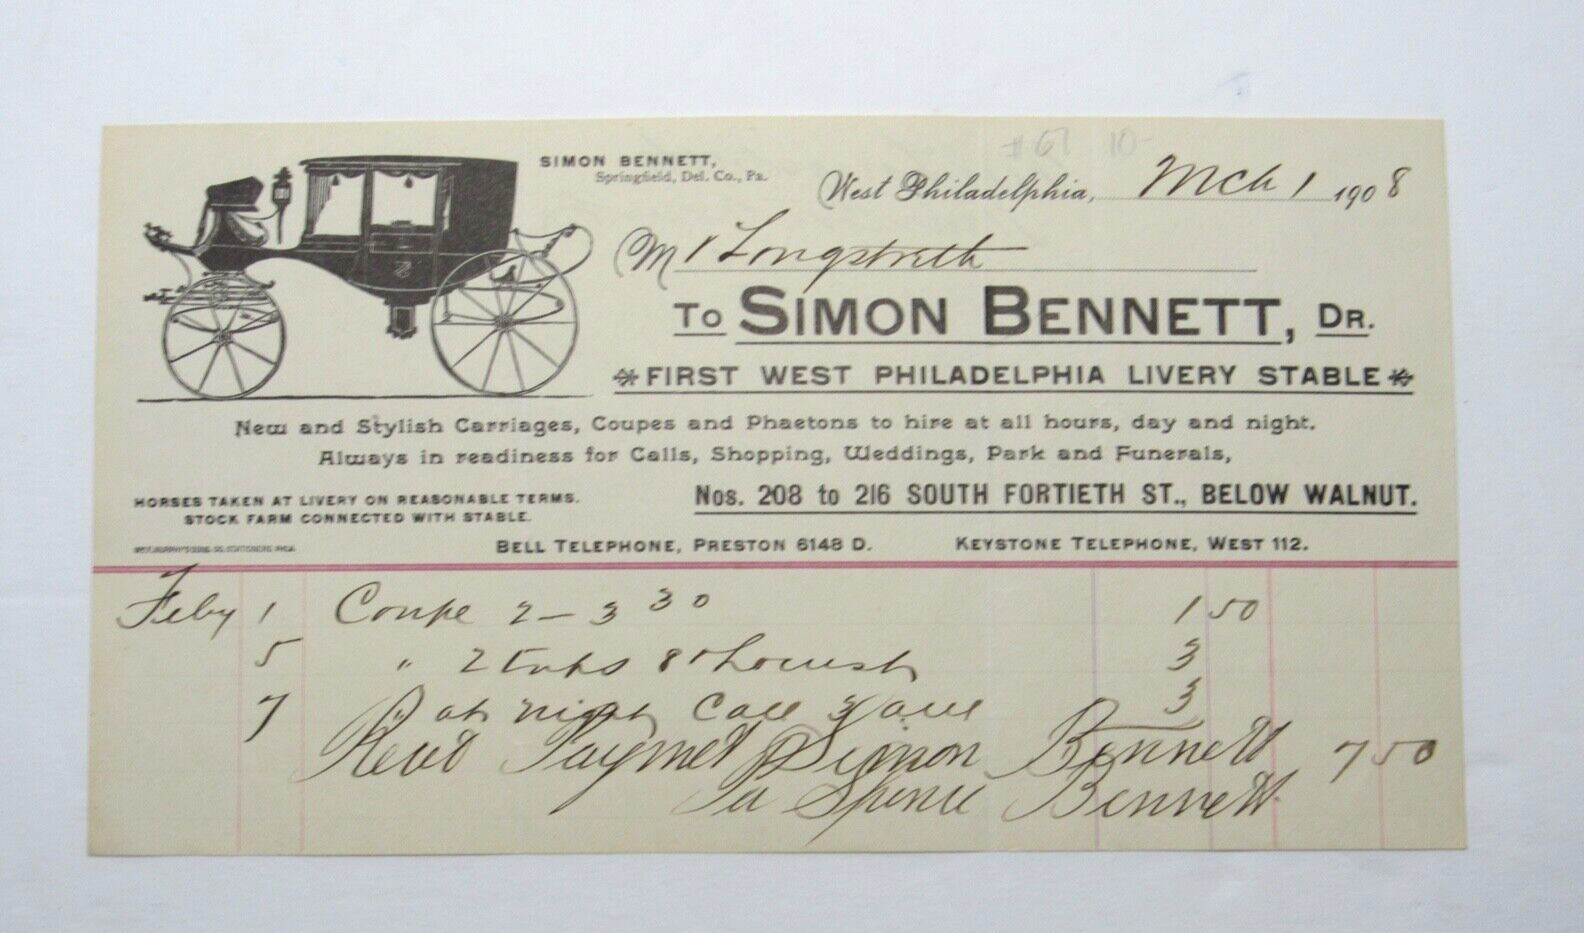 #67 10-
SIMON BENNETT,
Springfield, Del. Co., Pa.
West Philadelphia, Mch 1 1908
Mr Longstreth
TO SIMON BENNETT, DR.
FIRST WEST PHILADELPHIA LIVERY STABLE
New and Stylish Carriages, Coupes and Phaetons to hire at all hours, day and night.
Always in readiness for Calls, Shopping, Weddings, Park and Funerals,
HORSES TAKEN AT LIVERY ON REASONABLE TERMS.
STOCK FARM CONNECTED WITH STABLE.
Nos. 208 to 216 SOUTH FORTIETH ST., BELOW WALNUT.
BELL TELEPHONE, PRESTON 6148 D.
KEYSTONE TELEPHONE, WEST 112.
Feby 1 Coupe 2 - 3 30 1 50
5 " 2 Locust 3
7 at night Call 3
Recd Paymet Simon Bennett 7 50
Per Spence Bennett